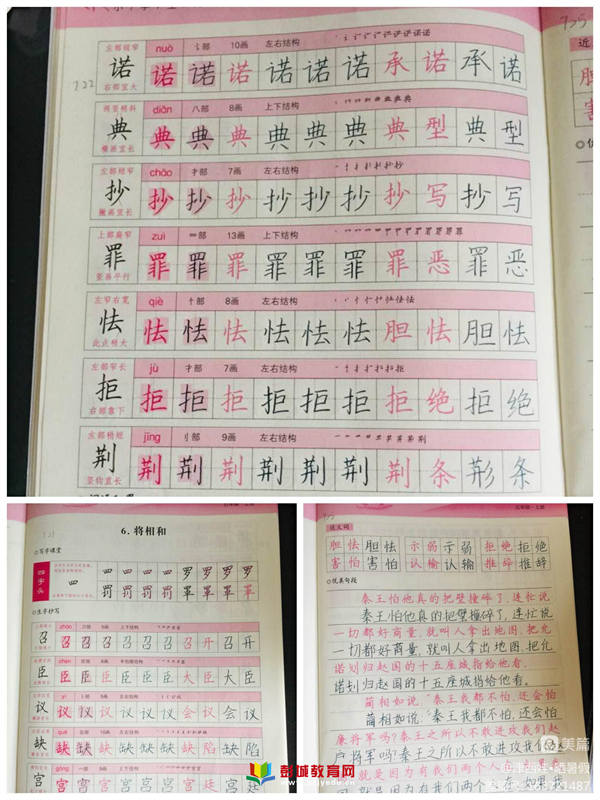 7.25
左部稍窄 nuò 讠部 10画 左右结构
诺 诺 诺 诺 诺 诺 诺 承 诺 承 诺
右部宜大
7.22
diǎn 八部 8画 上下结构
典 典 典 典 典 典 典 典 型 典 型
横画宜长
左部稍窄 chāo 扌部 7画 左右结构
抄 抄 抄 抄 抄 抄 抄 抄 写 抄 写
撇画宜长
上部扁窄 zuì 罒部 13画 上下结构
罪 罪 罪 罪 罪 罪 罪 罪 恶 罪 恶
竖画平行
左窄右宽 qiè 忄部 8画 左右结构
怯 怯 怯 怯 怯 怯 怯 胆 怯 胆 怯
此点稍大
左部窄长 jù 扌部 7画 左右结构
拒 拒 拒 拒 拒 拒 拒 拒 绝 拒 绝
右部靠下
左部稍短 jīng 刂部 9画 左右结构
荆 荆 荆 荆 荆 荆 荆 荆 条 荆 条
竖钩宜长
6. 将相和
写字课堂
四字头 四 四 四 四 罗 罗 罗 罗
罚 罚 罚 罚 罩 罩 罩 罩
生字抄写
召 召 召 召 召 召 召 召 开 召 开
臣 臣 臣 臣 臣 臣 臣 大 臣 大 臣
议 议 议 议 议 议 议 会 议 会 议
缺 缺 缺 缺 缺 缺 缺 缺 陷 缺 陷
宫 宫 宫 宫 宫 宫 宫 宫 廷 宫 廷
五年级·上册
近义词
胆怯 胆怯 示弱 示弱 拒绝 拒绝
害怕 害怕 认输 认输 推辞 推辞
优美句段
秦王怕他真的把璧撞碎了,连忙说
秦王怕他真的把璧撞碎了,连忙说
一切都好商量,就叫人拿出地图,把允
一切都好商量,就叫人拿出地图,把允
诺划归赵国的十五座城指给他看。
诺划归赵国的十五座城指给他看。
蔺相如说:“秦王我都不怕,还会怕
蔺相如说:“秦王我都不怕,还会怕
廉将军吗?秦王之所以不敢进攻我们赵
廉将军吗?秦王之所以不敢进攻我们
就是因为有我们两个人在
就是因为有我们两个人在
美篇
彭城教育网